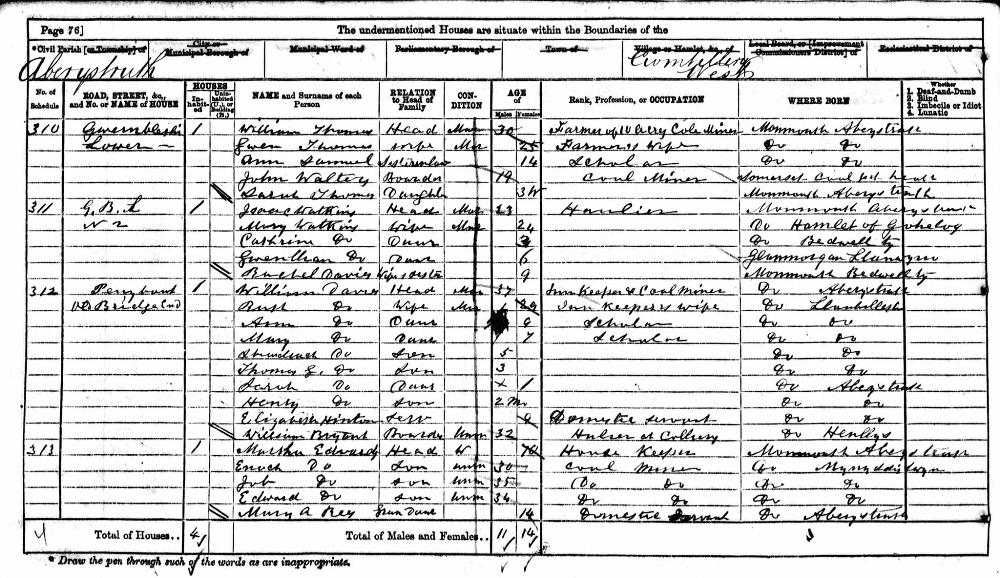 Page 76]
The undermentioned Houses are situate within the Boundaries of the
*Civil Parish [or Township] of City or Municipal Borough of Municipal Ward of Parliamentary Borough of Town of Village or Hamlet, &c., of Local Board, or [Improvement Commissioners District] of Ecclesiastical District of
Aberystruth Cwmtillery West
No. of Schedule ROAD, STREET, &c., and No. or NAME of HOUSE HOUSES In-habit-ed Unin-habited (U.), or Building (B.) NAME and Surname of each Person RELATION to Head of Family CON-DITION AGE of Males Females Rank, Profession, or OCCUPATION WHERE BORN Whether 1. Deaf-and-Dumb 2. Blind 3. Imbecile or Idiot 4. Lunatic
310 1 William Thomas Head Mar 30 Farmer of 10 Coal Miner Monmouth Aberystruth
Lower Gwen Thomas Wife Mar 25 Farmers Wife Do Do
Ann Samuel Sisterinlaw 14 Scholar Do Do
John Walters Boarder 19 Coal Miner Somerset
Sarah Thomas Daughter 3 Monmouth Aberystruth
311 1 Isaac Watkins Head Mar 23 Haulier Monmouth Aberystruth
Mary Watkins Wife Mar 24 Do Hamlet of
Cathrine Do Daur Do Bedwellty
Gwenllian Do Daur 6 Glanmorgan
Rachel Davies Wifes sister 9 Monmouth Bedwellty
312 1 William Davies Head Mar 37 Inn Keeper & Coal Miner Do Aberystruth
Bridge End Ruth Do Wife Mar 29 Inn Keepers wife Do Llanhilleth
Ann Do Daur Scholar Do Do
Mary Do Daur 7 Scholar Do Do
Do Son 5 Do Do
Thomas G. Do Son 3 Do Do
Sarah Do Daur 1 Do Aberystruth
Henry Do Son 2 Mo Do Do
Elizabeth Hinton Serv Domestic servant Do Do
William Bryant Boarder Unm 32 at Colliery Do Henllys
313 1 Martha Edwards Head W 70 House Keeper Monmouth Aberystruth
Enoch Do Son Unm 30 Coal Miner Do Mynyddislwyn
Job Do Son Unm 35 Do Do Do Do
Edward Do Son Unm 34 Do Do Do Do
Mary A Rees Gran Daur 14 Domestic Servant Do Aberystruth
4 Total of Houses.. 4 Total of Males and Females.. 11 14
* Draw the pen through such of the words as are inappropriate.